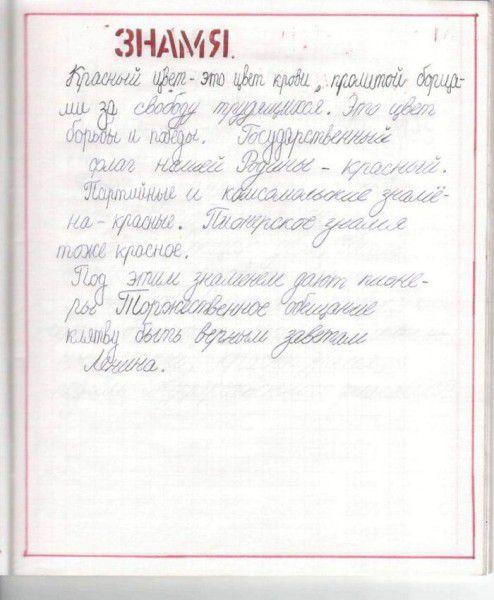 ЗНАМЯ.
Красный цвет - это цвет крови, пролитой борца-
ми за свободу трудящихся. Это цвет
борьбы и победы. Государственный
флаг нашей Родины - красный.
Партийные и комсомольские знамё-
на - красные. Пионерское знамя
тоже красное.
Под этим знаменем дают пионе-
ры Торжественное обещание
клятву быть верным заветам
Ленина.